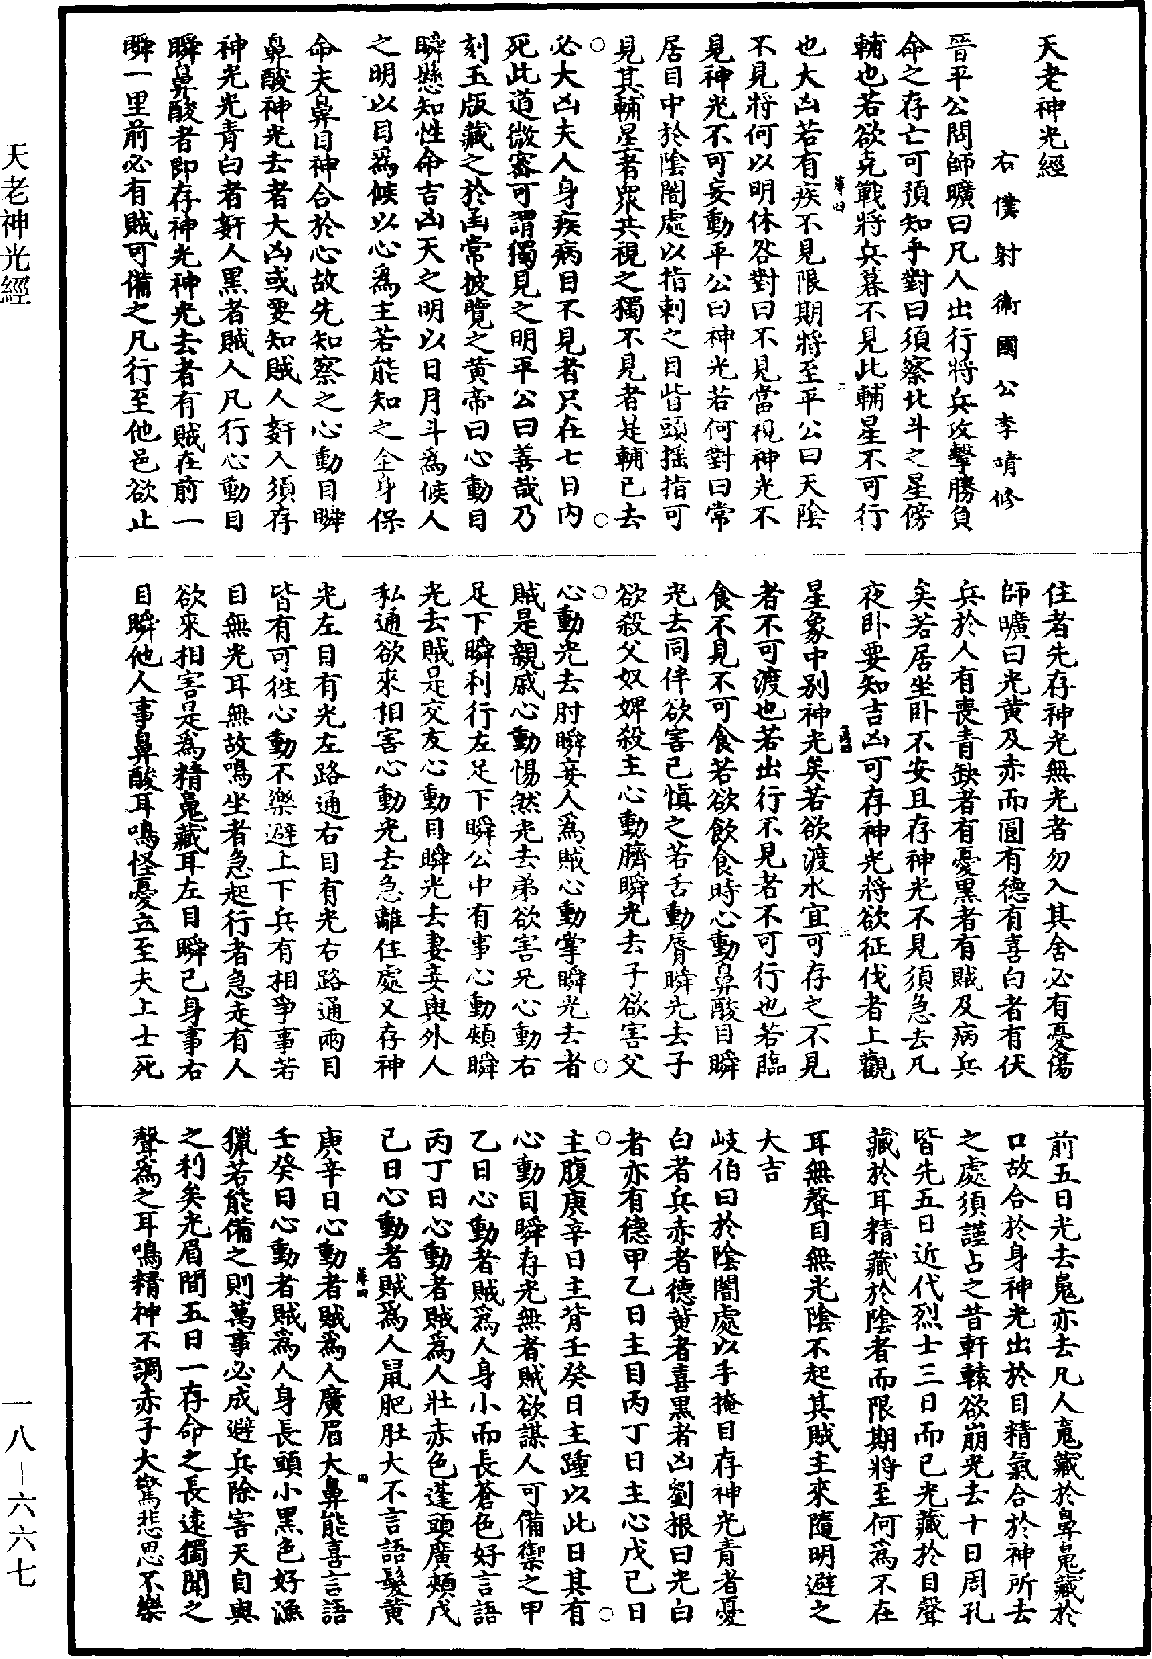 天老神光經
右僕射衛國公李靖修
晉平公問師曠曰凡人出行將兵攻擊勝負
命之存亡可預知乎對曰須察北斗之星傍
輔也若欲克戰將兵暮不見此輔星不可行
也大凶若有疾不見限期將至平公曰天陰
不見將何以明休咎對曰不見當視神光不
見神光不可妄動平公曰神光若何對曰常
居目中於陰闇處以指刺之目眥頭搖指可
見其輔星者眾共視之獨不見者是輔已去
必大凶夫人身疾病目不見者只在七日內
死此道微密可謂獨見之明平公曰善哉乃
刻玉版藏之於函常披覽之黃帝曰心動目
瞬懸知性命吉凶天之明以日月斗為候人
之明以目為候以心為主若能知之全身保
命夫鼻目神合於心故先知察之心動目瞬
鼻酸神光去者大凶或要知賊人姧人須存
神光光青白者姧人黑者賊人凡行心動目
瞬鼻酸者即存神光神光去者有賊在前一
瞬一里前必有賊可備之凡行至他邑欲止
住者先存神光無光者勿入其舍必有憂傷
師曠曰光黃及赤而圓有德有喜白者有伏
兵於人有喪青缺者有憂黑者有賊及病兵
矣若居坐卧不安且存神光不見須急去凡
夜卧要知吉凶可存神光將欲征伐者上觀
星象中別神光矣若欲渡水宜可存之不見
者不可渡也若出行不見者不可行也若臨
食不見不可食若欲飲食時心動鼻酸目瞬
光去同伴欲害己慎之若舌動脣瞬光去子
欲殺父奴婢殺主心動臍瞬光去子欲害父
心動光去肘瞬妾人為賊心動掌瞬光去者
賊是親戚心動惕然光去弟欲害兄心動右
足下瞬利行左足下瞬公中有事心動頰瞬
光去賊是交友心動目瞬光去妻妾與外人
私通欲來相害心動光去急離住處又存神
光左目有光左路通右目有光右路通兩目
皆有可徃心動不樂避上下兵有相爭事若
目無光耳無故鳴坐者急起行者急走有人
欲來相害是為精䰟藏耳左目瞬己身事右
目瞬他人事鼻酸耳鳴怪憂立至夫上士死
前五日光去䰟亦去凡人䰟藏於鼻䰟藏於
口故合於身神光出於目精氣合於神所去
之處須謹占之昔軒轅欲崩光去十日周孔
皆先五日近代烈士三日而已光藏於目聲
藏於耳精藏於陰者而限期將至何為不在
耳無聲目無光陰不起其賊主來隨明避之
大吉
岐伯曰於陰闇處以手掩目存神光青者憂
白者兵赤者德黃者喜黑者凶劉根曰光白
者亦有德甲乙日主目丙丁日主心戊己日
主腹庚辛日主背壬癸日主踵以此日其有
心動目瞬存光無者賊欲謀人可備禦之甲
乙日心動者賊為人身小而長蒼色好言語
丙丁日心動者賊為人壯赤色蓬頭廣頰戊
己日心動者賊為人鼠肥肚大不言語髮黃
庚辛日心動者賊為人廣眉大鼻能喜言語
壬癸日心動者賊為人身長頭小黑色好漁
獵若能備之則萬事必成避兵除害天自與
之利矣光眉間五日一存命之長遠獨聞之
聲為之耳鳴精神不調赤子大驚悲思不樂
天老神光經
一八－六六七